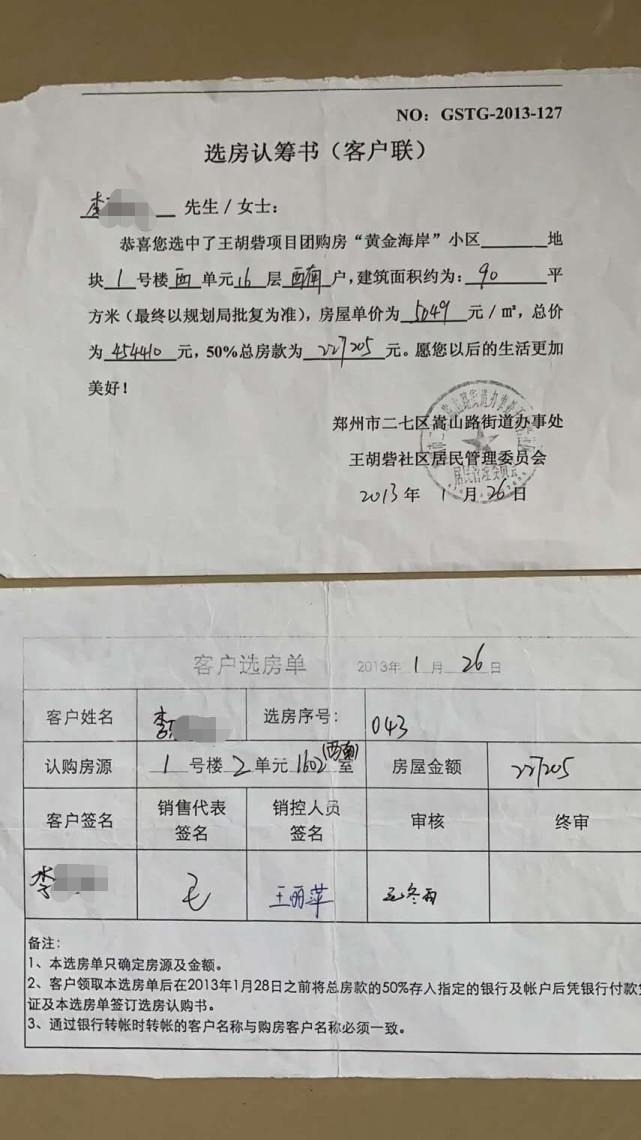 NO：GSTG-2013-127
选房认筹书（客户联）
李 先生/女士：
恭喜您选中了王胡砦项目团购房“黄金海岸”小区______地
块 1 号楼 西 单元 16 层 西南 户，建筑面积约为：90 平
方米（最终以规划局批复为准），房屋单价为 5049 元/㎡，总价
为 454410 元，50%总房款为 227205 元。愿您以后的生活更加
美好！
郑州市二七区嵩山路街道办事处
王胡砦社区居民管理委员会
2013 年 1 月 26 日
居民管理委员会
客户选房单 2013年 1 月 26 日
客户姓名 李 选房序号： 043
(西南)
认购房源 1 号楼 2 单元 1602 室 房屋金额 227205
客户签名 销售代表签名 销控人员签名 审核 终审
李 王丽萍
备注：
1、本选房单只确定房源及金额。
2、客户领取本选房单后在2013年1月28日之前将总房款的50%存入指定的银行及帐户后凭银行付款凭
证及本选房单签订选房认购书。
3、通过银行转帐时转帐的客户名称与购房客户名称必须一致。